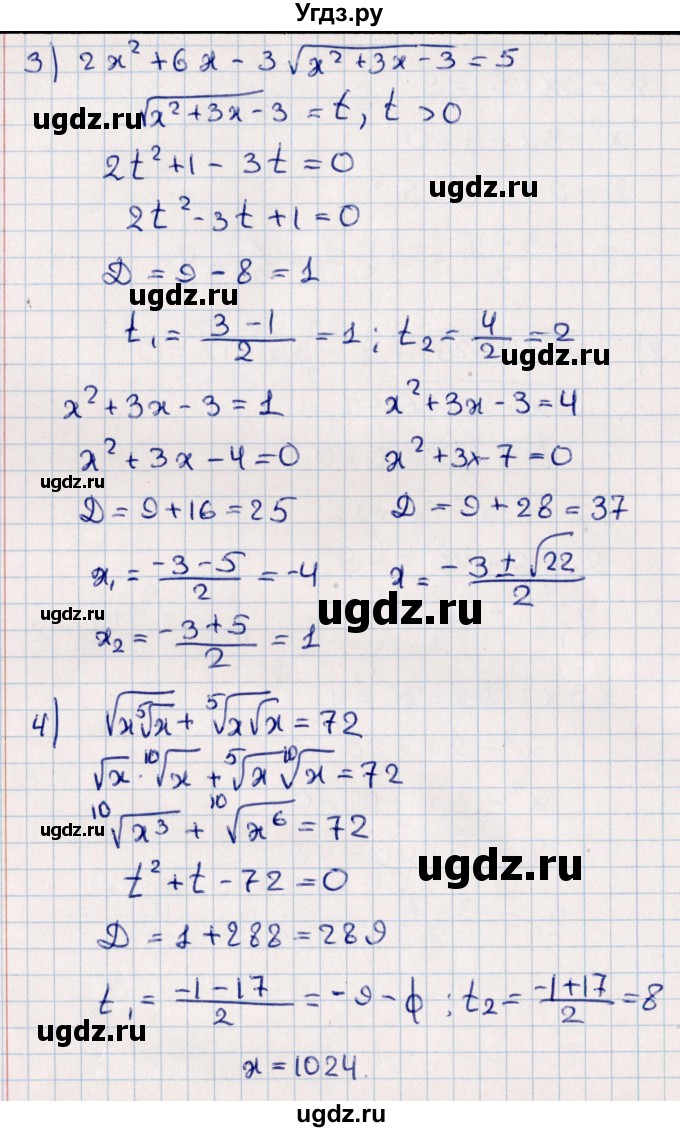 Угдз.ру
3) 2x² + 6x - 3√(x² + 3x - 3) = 5
ugdz.ru √(x² + 3x - 3) = t, t > 0
2t² + 1 - 3t = 0
ugdz.ru
2t² - 3t + 1 = 0
Д = 9 - 8 = 1
ugdz.ru
t₁ = (3 - 1)/2 = 1; t₂ = 4/2 = 2
ugdz.ru
x² + 3x - 3 = 1 x² + 3x - 3 = 4
x² + 3x - 4 = 0 x² + 3x - 7 = 0
ugdz.ru
Д = 9 + 16 = 25 Д = 9 + 28 = 37
x₁ = (-3 - 5)/2 = -4 x = (-3 ± √22)/2
ugdz.ru ugdz.ru
x₂ = (-3 + 5)/2 = 1
4) √(x⁵√x) + ⁵√(x√x) = 72
ugdz.ru
√x · ¹⁰√x + ⁵√x ¹⁰√x = 72
¹⁰√(x³) + ¹⁰√(x⁶) = 72
ugdz.ru
t² + t - 72 = 0
ugdz.ru
Д = 1 + 288 = 289
ugdz.ru
t₁ = (-1 - 17)/2 = -9 - ϕ; t₂ = (-1 + 17)/2 = 8
ugdz.ru
x = 1024.
ugdz.ru